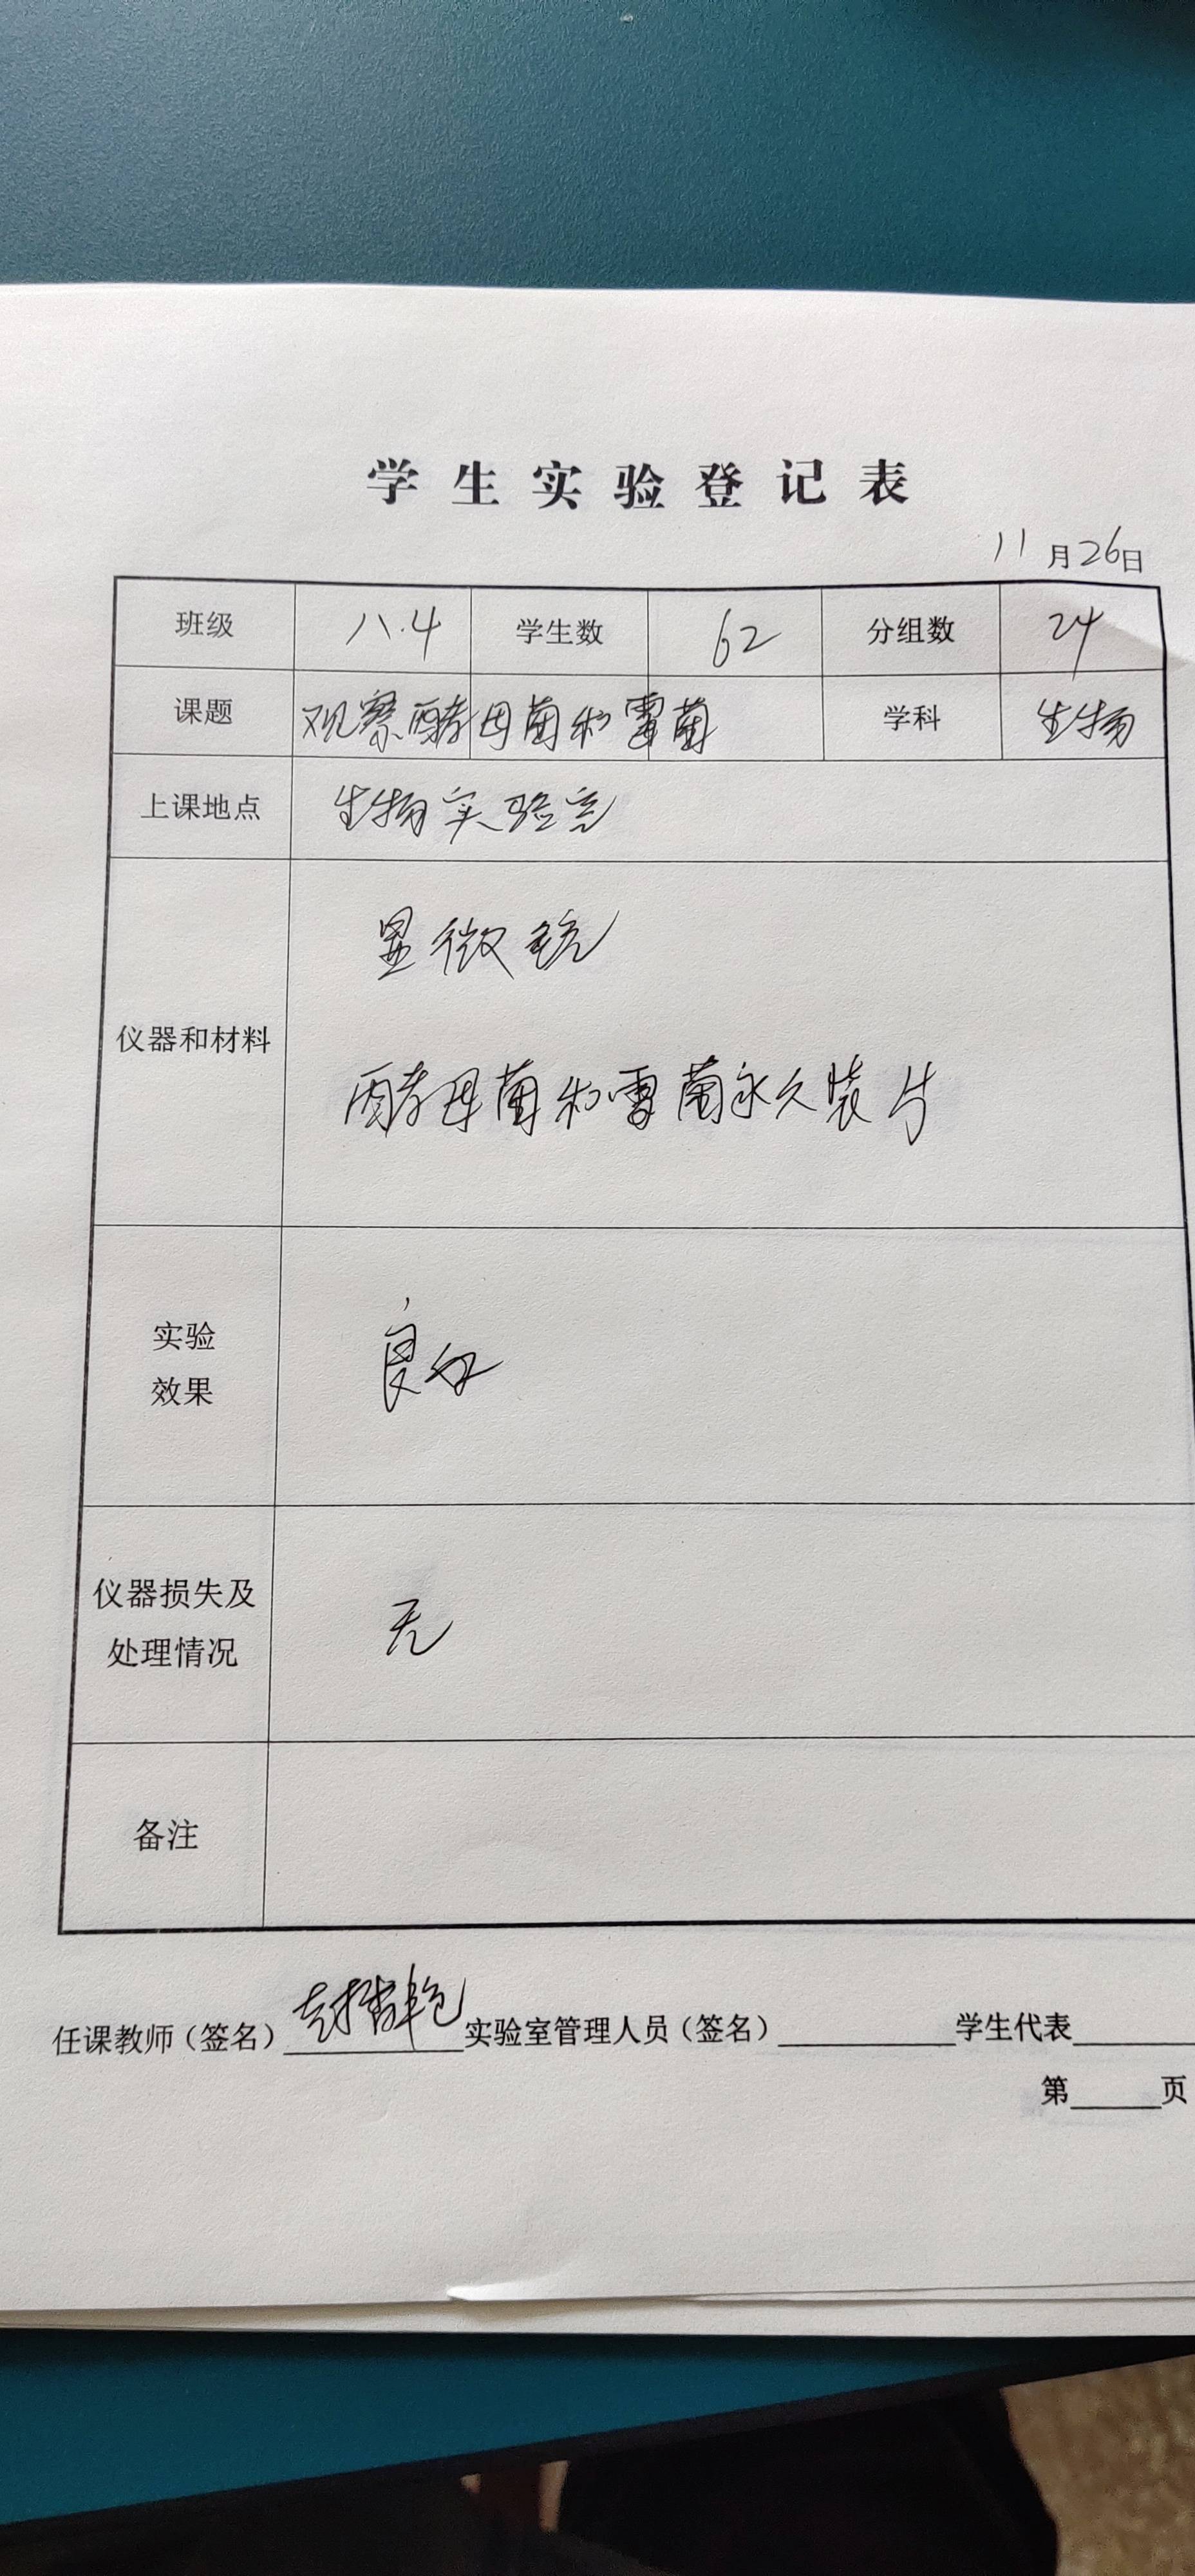 学生实验登记表
11月26日
班级 八.4 学生数 62 分组数 24
课题 观察酵母菌和霉菌 学科 生物
上课地点 生物实验室
仪器和材料
显微镜
酵母菌和霉菌永久装片
实验
效果
良好
仪器损失及
处理情况
无
备注
任课教师（签名） 实验室管理人员（签名） 学生代表
第 页